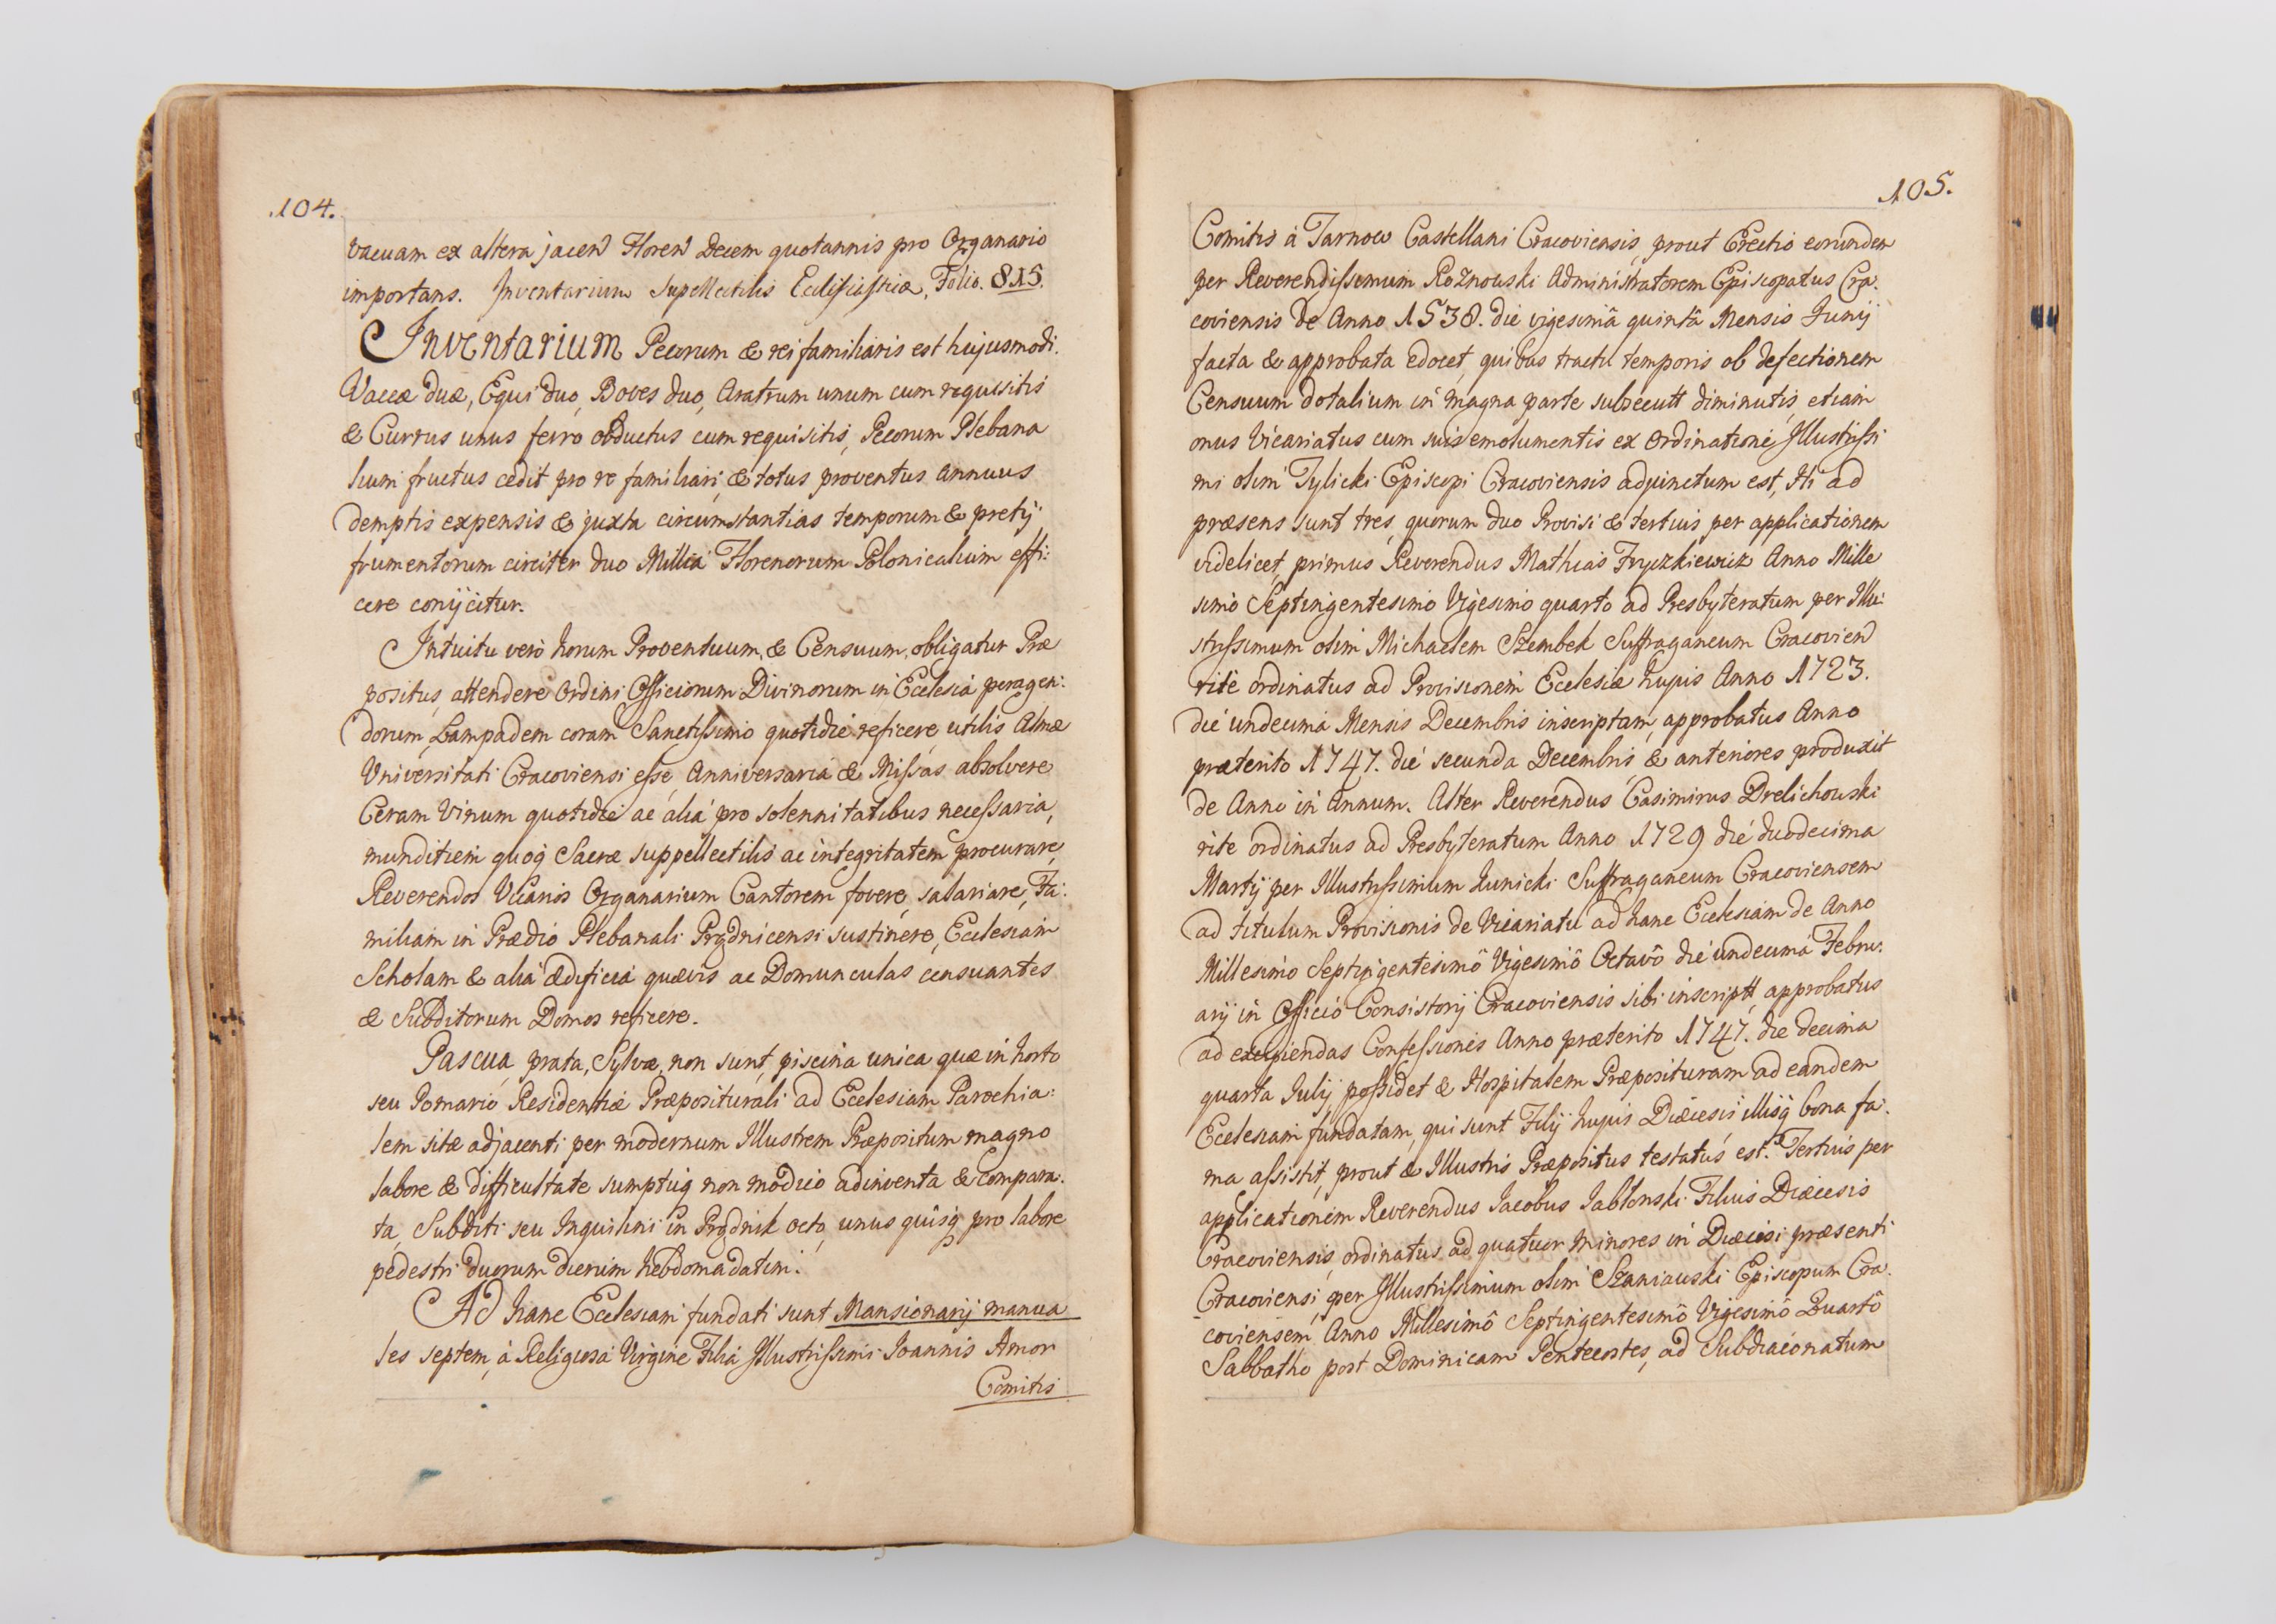 .104.
vacuam ex altera jacen Floren Decem quotannis pro Organario
importans. Inventarium Supellectilis Ecclesiasticæ, Folio. 815.
Inventarium Pecorum & rei familiaris est hujusmodi.
Vaccæ duæ, Equi duo, Boves duo, Aratrum unum cum requisitis
& Currus unus ferro obductus cum requisitis, Pecorum Plebana
lium fructus cedit pro re familiari, & totus proventus annuus
demptis expensis & juxta circumstantias temporum & pretij
frumentorum circiter duo Millia Florenorum Polonicalium effi:
cere conijcitur.
Intuitu verò horum Proventuum, & Censuum, obligatur Præ
positus, attendere Ordini Officiorum Divinorum in Ecclesia peragen:
dorum, Lampadem coram Sanctissimo quotidie reficere, utilis Almæ
Universitati Cracoviensi esse, Anniversaria & Missas absolvere
Ceram Vinum quotidie ac alia pro solennitatibus necessaria,
munditiem quoq Sacræ suppellectilis ac integritatem procurare,
Reverendos Vicarios Organarium Cantorem fovere, salariare, Fa:
miliam in Prædio Plebanali Prądnicensi sustinere, Ecclesiam
Scholam & alia ædificia quævis ac Domunculas censuantes
& Subditorum Domos reficere.
Pascua, prata, Sylvæ, non sunt, piscina unica quæ in horto
seu Pomario Residentiæ Præpositurali ad Ecclesiam Parochia:
lem sitæ adjacenti per modernum Illustrem Præpositum magno
labore & difficultate sumptuq non modico adinventa & compara:
ta, Subditi seu Inquilini in Prądnik octo, unus quisq pro labore
pedestri duorum dierum hebdomadatim.
Ad hanc Ecclesiam fundati sunt Mansionarij manua
les septem, à Religiosa Virgine Filia Illustrissimi Joannis Amor
Comitis
105.
Comitis à Tarnow Castellani Cracoviensis, prout Erectio eorundem
per Reverendissimum Roznowski Administratorem Episcopatus Cra:
coviensis de Anno 1538. die vigesimâ quintâ Mensis Junij
facta & approbata edocet, quibus tractu temporis ob defectionem
Censuum dotalium in magna parte subsecutt diminutis, etiam
onus Vicariatus cum suis emolumentis ex Ordinatione Illustrissi
mi olim Tylicki Episcopi Cracoviensis adjunctum est, Hi ad
præsens sunt tres, quorum duo Provisi & tertius per applicationem
videlicet, primus Reverendus Mathias Fryczkiewicz Anno Mille
simo Septingentesimo Vigesimo quarto ad Presbyteratum per Illu:
strissimum olim Michaelem Szembek Suffraganeum Cracovien
ritè ordinatus ad Provisionem Ecclesiæ hujus Anno 1723.
die undecima Mensis Decembris inscriptam, approbatus Anno
præterito 1747. die secunda Decembris & anteriores produxit
de Anno in Annum. Alter Reverendus Casimirus Drelichowski
rite ordinatus ad Presbyteratum Anno 1729 die duodecima
Martij per Illustrissimum Kunicki Suffraganeum Cracoviensem
ad titulum Provisionis de Vicariatu ad hanc Ecclesiam de Anno
Millesimo Septingentesimô Vigesimô Octavô die undecima Febru:
arij in Officio Consistorij Cracoviensis sibi inscriptt, approbatus
ad excipiendas Confessiones Anno præterito 1747. die decima
quarta Julij possidet & Hospitalem Præposituram ad eandem
Ecclesiam fundatam, qui sunt Filij hujus Diæcesis illisq bona fa:
ma assistit, prout & Illustris Præpositus testatus est. Tertius per
applicationem Reverendus Jacobus Jabłonski Filius Diæcesis
Cracoviensis, ordinatus ad quatuor Minores in Diæcesi præsenti
Cracoviensi, per Illustrissimum olim Szaniawski Episcopum Cra:
coviensem Anno Millesimô Septingentesimô Vigesimô Quartô
Sabbatho post Dominicam Pentecostes, ad Subdiaconatum